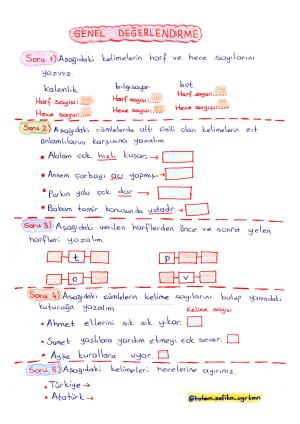 GENEL DEĞERLENDİRME
Soru 1) Aşağıdaki kelimelerin harf ve hece sayılarını
yazınız.
kalemlik bilgisayar bot
Harf sayısı:.... Harf sayısı:.... Harf sayısı:....
Hece sayısı:.... Hece sayısı:.... Hece sayısı:....
Soru 2) Aşağıdaki cümlelerde altı çizili olan kelimelerin zıt
anlamlılarını karşısına yazalım
• Ablam çok hızlı koşar.→
• Annem çorbayı acı yapmış.→
• Parkın yolu çok dar →
• Babam tamir konusunda ustadır.→
Soru 3) Aşağıda verilen harflerden önce ve sonra gelen
harfleri yazalım.
t p
o v
Soru 4) Aşağıdaki cümlelerin kelime sayılarını bulup yanındaki
kutucuğa yazalım
Kelime sayısı
• Ahmet ellerini sık sık yıkar.
• Samet yaşlılara yardım etmeyi çok sever.
• Ayşe kurallara uyar.
Soru 5) Aşağıdaki kelimeleri hecelerine ayırınız.
• Türkiye →
• Atatürk →